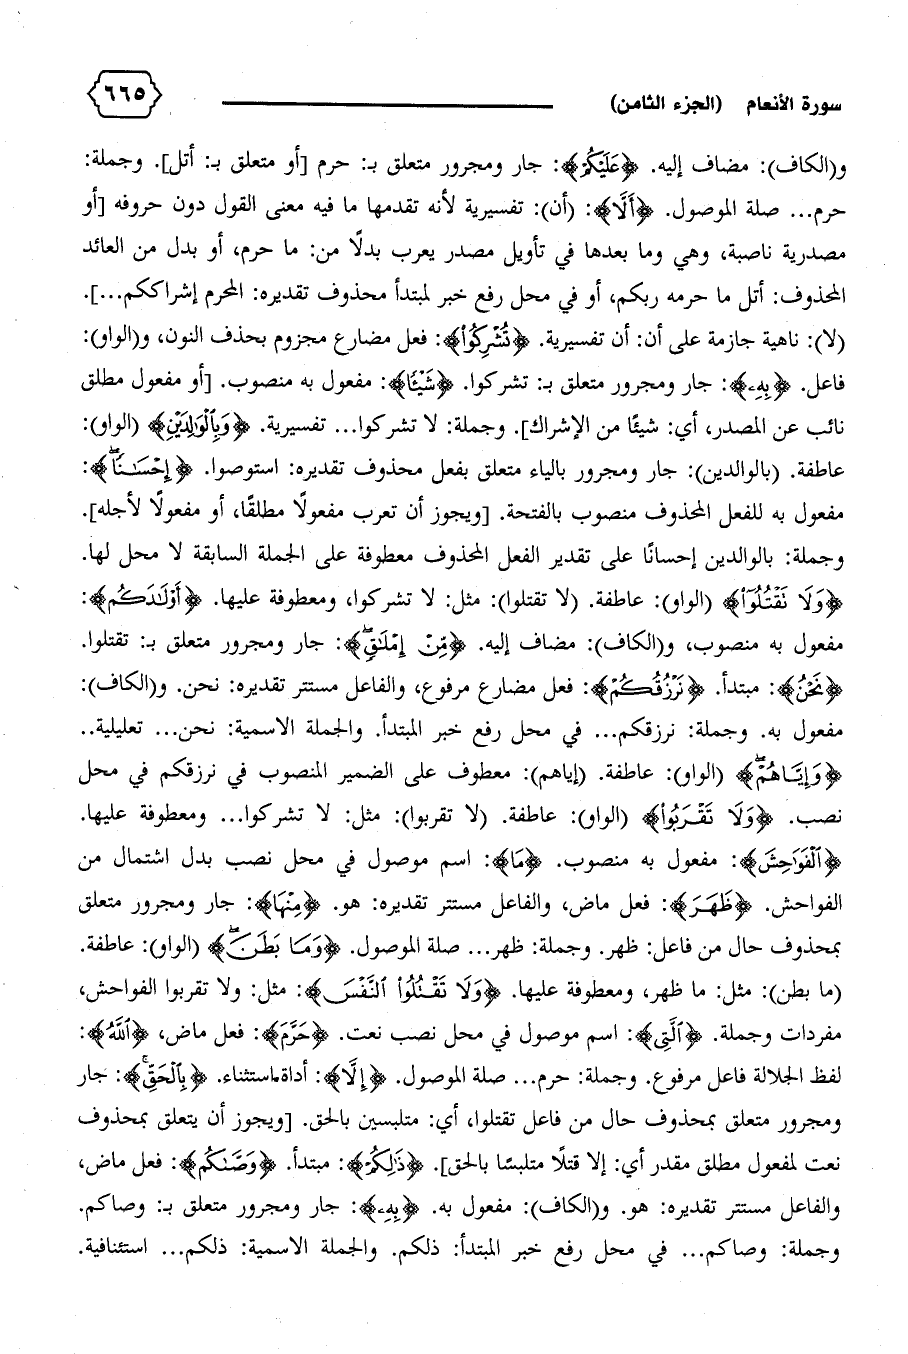 سورة الأنعام (الجزء الثامن) ٦٦٥
و(الكاف): مضاف إليه. ﴿عَلَيْكُمْ﴾: جار ومجرور متعلق بـ: حرم [أو متعلق بـ: أتل]. وجملة:
حرم... صلة الموصول. ﴿أَلَّا﴾: (أن): تفسيرية لأنه تقدمها ما فيه معنى القول دون حروفه [أو
مصدرية ناصبة، وهي وما بعدها في تأويل مصدر يعرب بدلًا من: ما حرم، أو بدل من العائد
المحذوف: أتل ما حرمه ربكم، أو في محل رفع خبر لمبتدأ محذوف تقديره: المحرم إشراككم...].
(لا): ناهية جازمة على أن: أن تفسيرية. ﴿تُشْرِكُوا۟﴾: فعل مضارع مجزوم بحذف النون، و(الواو):
فاعل. ﴿بِهِۦ﴾: جار ومجرور متعلق بـ: تشركوا. ﴿شَيْـًٔا﴾: مفعول به منصوب. [أو مفعول مطلق
نائب عن المصدر، أي: شيئًا من الإشراك]. وجملة: لا تشركوا... تفسيرية. ﴿وَبِٱلْوَٰلِدَيْنِ﴾ (الواو):
عاطفة. (بالوالدين): جار ومجرور بالياء متعلق بفعل محذوف تقديره: استوصوا. ﴿إِحْسَـٰنًاۖ﴾:
مفعول به للفعل المحذوف منصوب بالفتحة. [ويجوز أن تعرب مفعولًا مطلقًا، أو مفعولًا لأجله].
وجملة: بالوالدين إحسانًا على تقدير الفعل المحذوف معطوفة على الجملة السابقة لا محل لها.
﴿وَلَا تَقْتُلُوٓا۟﴾ (الواو): عاطفة. (لا تقتلوا): مثل: لا تشركوا، ومعطوفة عليها. ﴿أَوْلَـٰدَكُم﴾:
مفعول به منصوب، و(الكاف): مضاف إليه. ﴿مِّنْ إِمْلَـٰقٍۖ﴾: جار ومجرور متعلق بـ: تقتلوا.
﴿نَّحْنُ﴾: مبتدأ. ﴿نَرْزُقُكُمْ﴾: فعل مضارع مرفوع، والفاعل مستتر تقديره: نحن. و(الكاف):
مفعول به. وجملة: نرزقكم... في محل رفع خبر المبتدأ. والجملة الاسمية: نحن... تعليلية..
﴿وَإِيَّاهُمْۖ﴾ (الواو): عاطفة. (إياهم): معطوف على الضمير المنصوب في نرزقكم في محل
نصب. ﴿وَلَا تَقْرَبُوا۟﴾ (الواو): عاطفة. (لا تقربوا): مثل: لا تشركوا... ومعطوفة عليها.
﴿ٱلْفَوَٰحِشَ﴾: مفعول به منصوب. ﴿مَا﴾: اسم موصول في محل نصب بدل اشتمال من
الفواحش. ﴿ظَهَرَ﴾: فعل ماض، والفاعل مستتر تقديره: هو. ﴿مِنْهَا﴾: جار ومجرور متعلق
بمحذوف حال من فاعل: ظهر. وجملة: ظهر... صلة الموصول. ﴿وَمَا بَطَنَۖ﴾ (الواو): عاطفة.
(ما بطن): مثل: ما ظهر، ومعطوفة عليها. ﴿وَلَا تَقْتُلُوا۟ ٱلنَّفْسَ﴾: مثل: ولا تقربوا الفواحش،
مفردات وجملة. ﴿ٱلَّتِى﴾: اسم موصول في محل نصب نعت. ﴿حَرَّمَ﴾: فعل ماض، ﴿ٱللَّهُ﴾:
لفظ الجلالة فاعل مرفوع. وجملة: حرم... صلة الموصول. ﴿إِلَّا﴾: أداة استثناء. ﴿بِٱلْحَقِّۚ﴾: جار
ومجرور متعلق بمحذوف حال من فاعل تقتلوا، أي: متلبسين بالحق. [ويجوز أن يتعلق بمحذوف
نعت لمفعول مطلق مقدر أي: إلا قتلًا متلبسًا بالحق]. ﴿ذَٰلِكُمْ﴾: مبتدأ. ﴿وَصَّىٰكُم﴾: فعل ماض،
والفاعل مستتر تقديره: هو. و(الكاف): مفعول به. ﴿بِهِۦ﴾: جار ومجرور متعلق بـ: وصاكم.
وجملة: وصاكم... في محل رفع خبر المبتدأ: ذلكم. والجملة الاسمية: ذلكم... استئنافية.